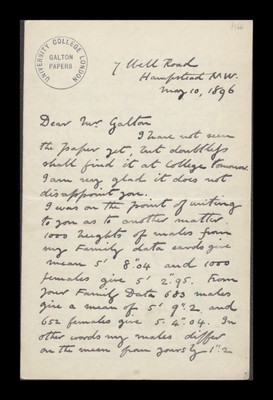 UNIVERSITY COLLEGE LONDON
GALTON
PAPERS
7 Well Road
Hampstead N.W.
May 10, 1896
Dear Mr. Galton
I have not seen
the paper yet, but doubtless
shall find it at College tomorrow.
I am very glad it does not
disappoint you.
I was on the point of writing
to you as to another matter.
1000 heights of males from
my Family data cards give
mean 5' 8".04 and 1000
females give 5' 2".95. From
your Family Data 683 males
give a mean of 5' 9".2 and
652 females give 5' 4".04. In
other words my males differ
on the mean from yours by 1".2